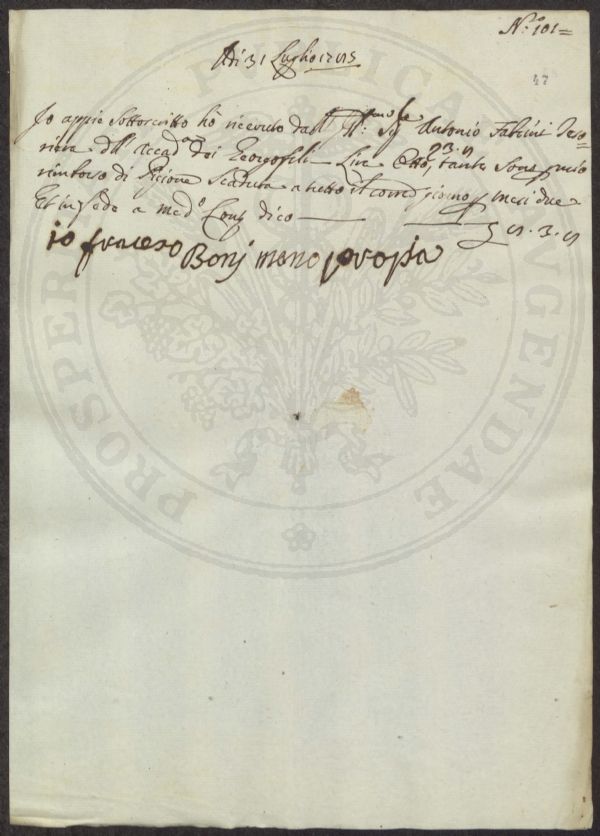 N.º 101=
47
Adi 31 Luglio
Io appiè Sottoscritto hò ricevuto dall' Ill.º Sig Antonio Fabrini Teso
riere dell' Accad.ª dei Georgofili Lire Otto, tanti Sono p mio
rimborso di Pigione Scaduta a tutto il giorno p mesi due =
Et in fede a med.º dico
3
io franceso Bonj mano propia
PROSPERITATI PUBLICAE AUGENDAE